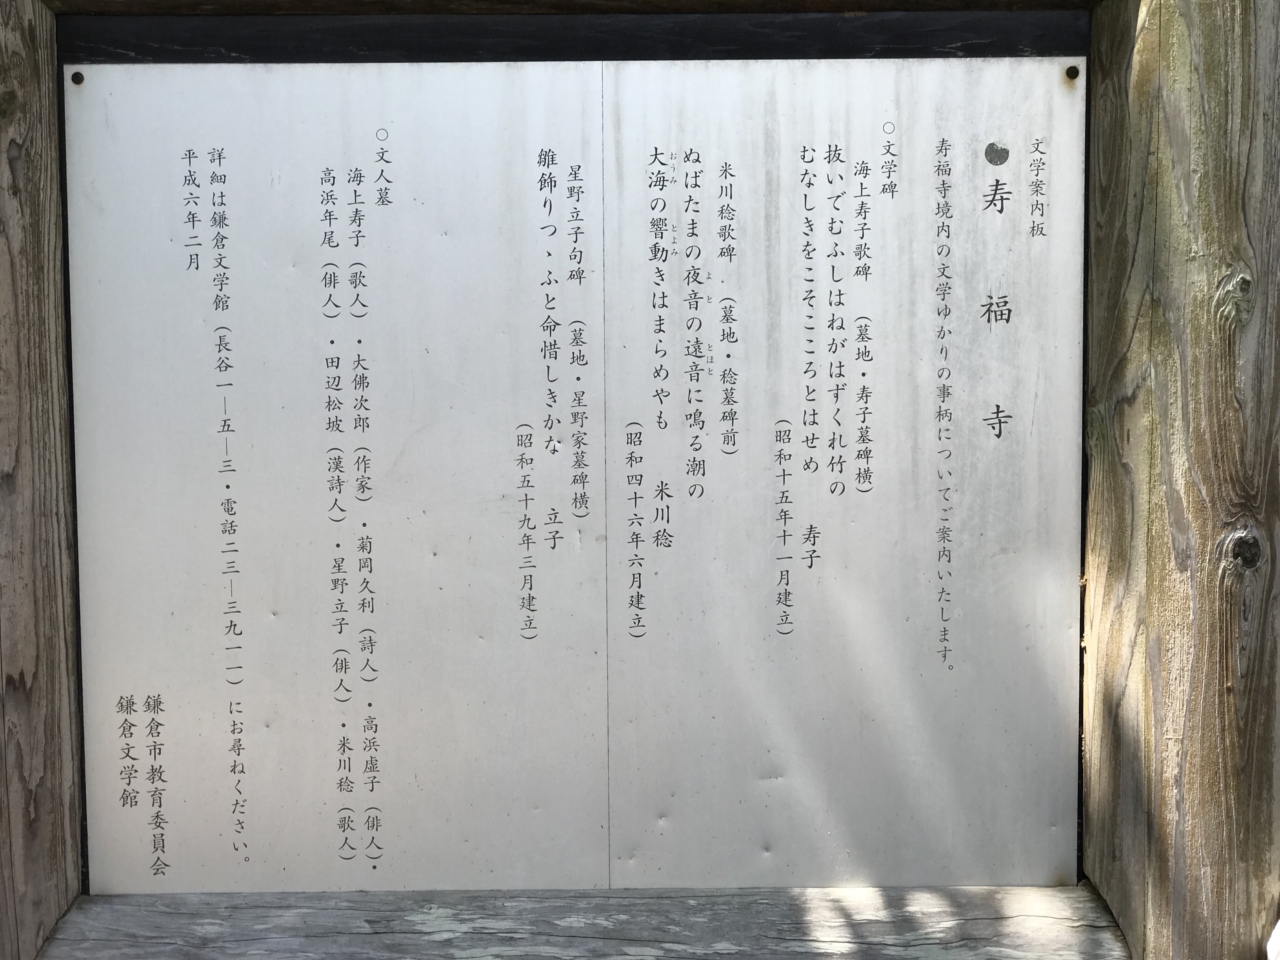 文学案内板
●寿福寺
寿福寺境内の文学ゆかりの事柄についてご案内いたします。
○文学碑
海上寿子歌碑 (墓地・寿子墓碑横)
抜いでむふしはねがはずくれ竹の
むなしきをこそこころとはせめ 寿子
(昭和十五年十一月建立)
米川稔歌碑 (墓地・稔墓碑前)
ぬばたまの夜音の遠音に鳴る潮の
よと とほと
大海の響動きはまらめやも 米川稔
おうみ とよみ
(昭和四十六年六月建立)
星野立子句碑 (墓地・星野家墓碑横)
雛飾りつゝふと命惜しきかな 立子
(昭和五十九年三月建立)
○文人墓
海上寿子(歌人)・大佛次郎(作家)・菊岡久利(詩人)・高浜虚子(俳人)・
高浜年尾(俳人)・田辺松坡(漢詩人)・星野立子(俳人)・米川稔(歌人)
詳細は鎌倉文学館(長谷一―五―三・電話二三―三九一一)にお尋ねください。
平成六年二月
鎌倉市教育委員会
鎌倉文学館